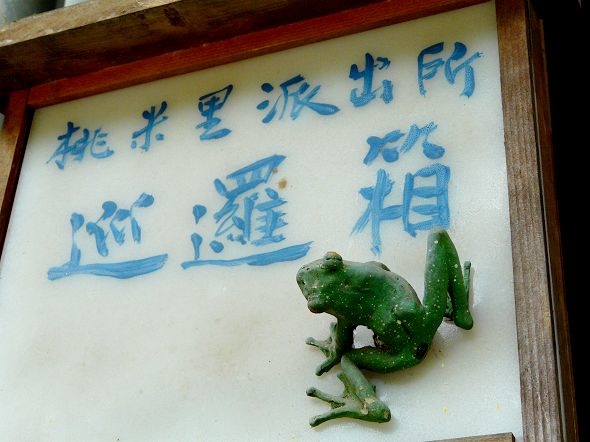 桃米里派出所
巡邏箱